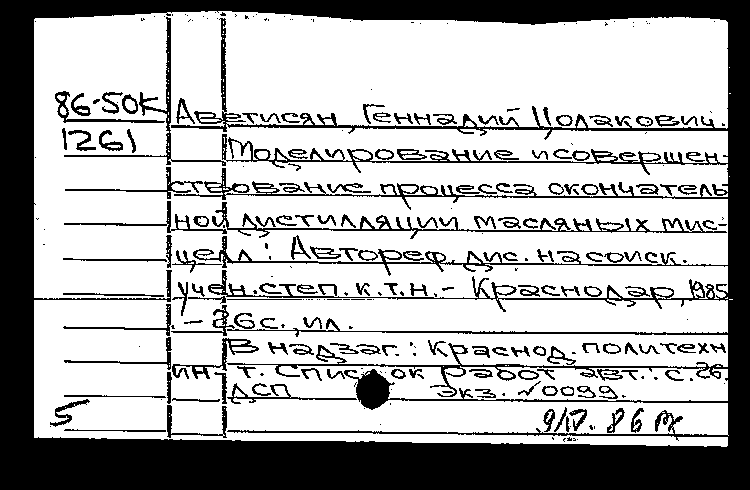 86-50К
1261
Аветисян, Геннадий Цолакович.
Моделирование и совершен-
ствование процесса окончатель
ной дистилляции масляных мис-
целл : Автореф. дис. на соиск.
учен. степ. к.т.н. - Краснодар, 1985
. - 26 с., ил.
В надзаг. : Краснод. политехн
ин-т. Список работ авт. : с. 26.
ДСП экз. №0099.
5
9/IV. 86